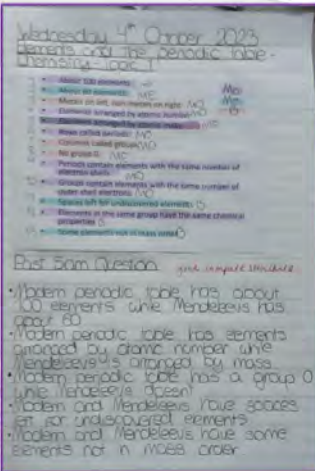 Wednesday 4th October 2023
Elements and The periodic table -
Chemistry Topic 1
• About 100 elements
• About 60 elements MO
• Metals on left, non-metals on right MO
• Elements arranged by atomic number MO
• Elements arranged by atomic mass
• Rows called periods MO
• Columns called groups MO
• No group 0
• Periods contain elements with the same number of
electron shells MO
• Groups contain elements with the same number of
outer shell electrons MO
• Spaces left for undiscovered elements B
• Elements in the same group have the same chemical
properties B
• Some elements not in mass order B
Past Exam Question good compare structure
• Modern periodic table has about
100 elements while Mendeleevs has
about 60
• Modern periodic table has elements
arranged by atomic number while
Mendeleevs is arranged by mass
• Modern periodic table has a group 0
while Mendeleevs doesn't
• Modern and Mendeleevs have spaces
left for undiscovered elements
• Modern and Mendeleevs have some
elements not in mass order